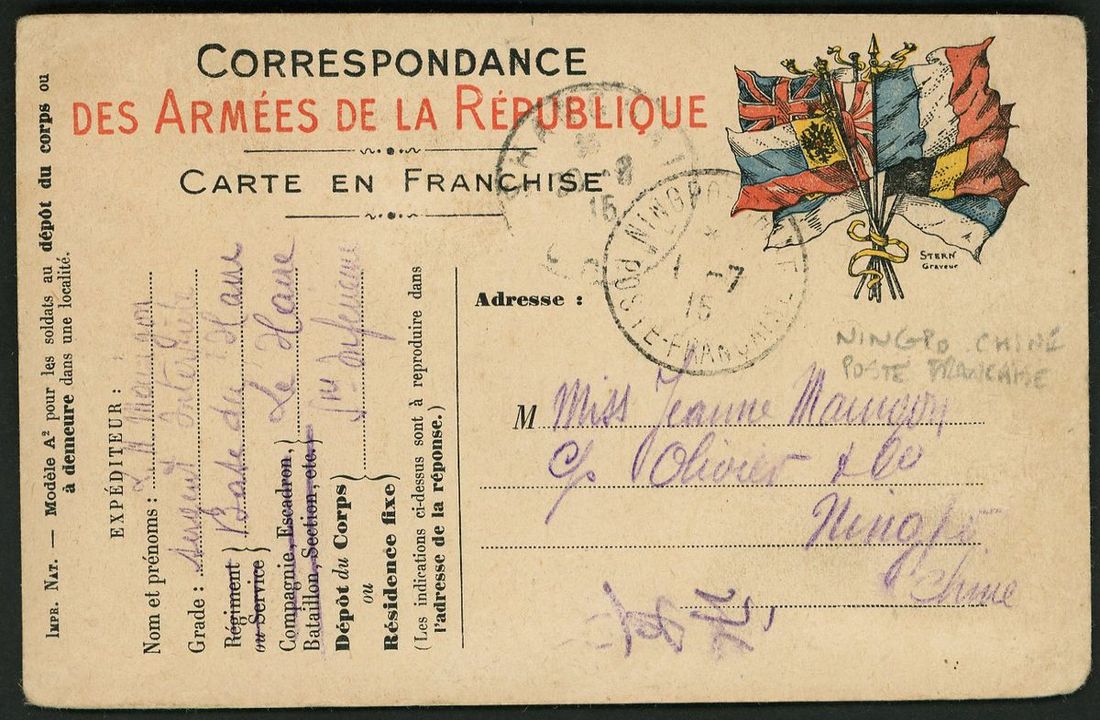 CORRESPONDANCE
DES ARMÉES DE LA RÉPUBLIQUE
CARTE EN FRANCHISE
STERN
Graveur
IMPR. NAT. — Modèle A² pour les soldats au dépôt du corps ou
à demeure dans une localité.
EXPÉDITEUR :
Nom et prénoms :
Grade : Sergent Interprète
Régiment
ou Service
Base du Havre
Compagnie, Escadron,
Bataillon, Section, etc.
Le Havre
Dépôt du Corps
ou
Résidence fixe
Inférieure
(Les indications ci-dessus sont à reproduire dans
l'adresse de la réponse.)
SHANGHAI
15
NINGPO
1 -7
15
POSTE FRANÇAISE
Adresse :
NINGPO CHINE
POSTE FRANCAISE
M Miss Jeanne
c/o Olivier & Co
Ningpo
Chine